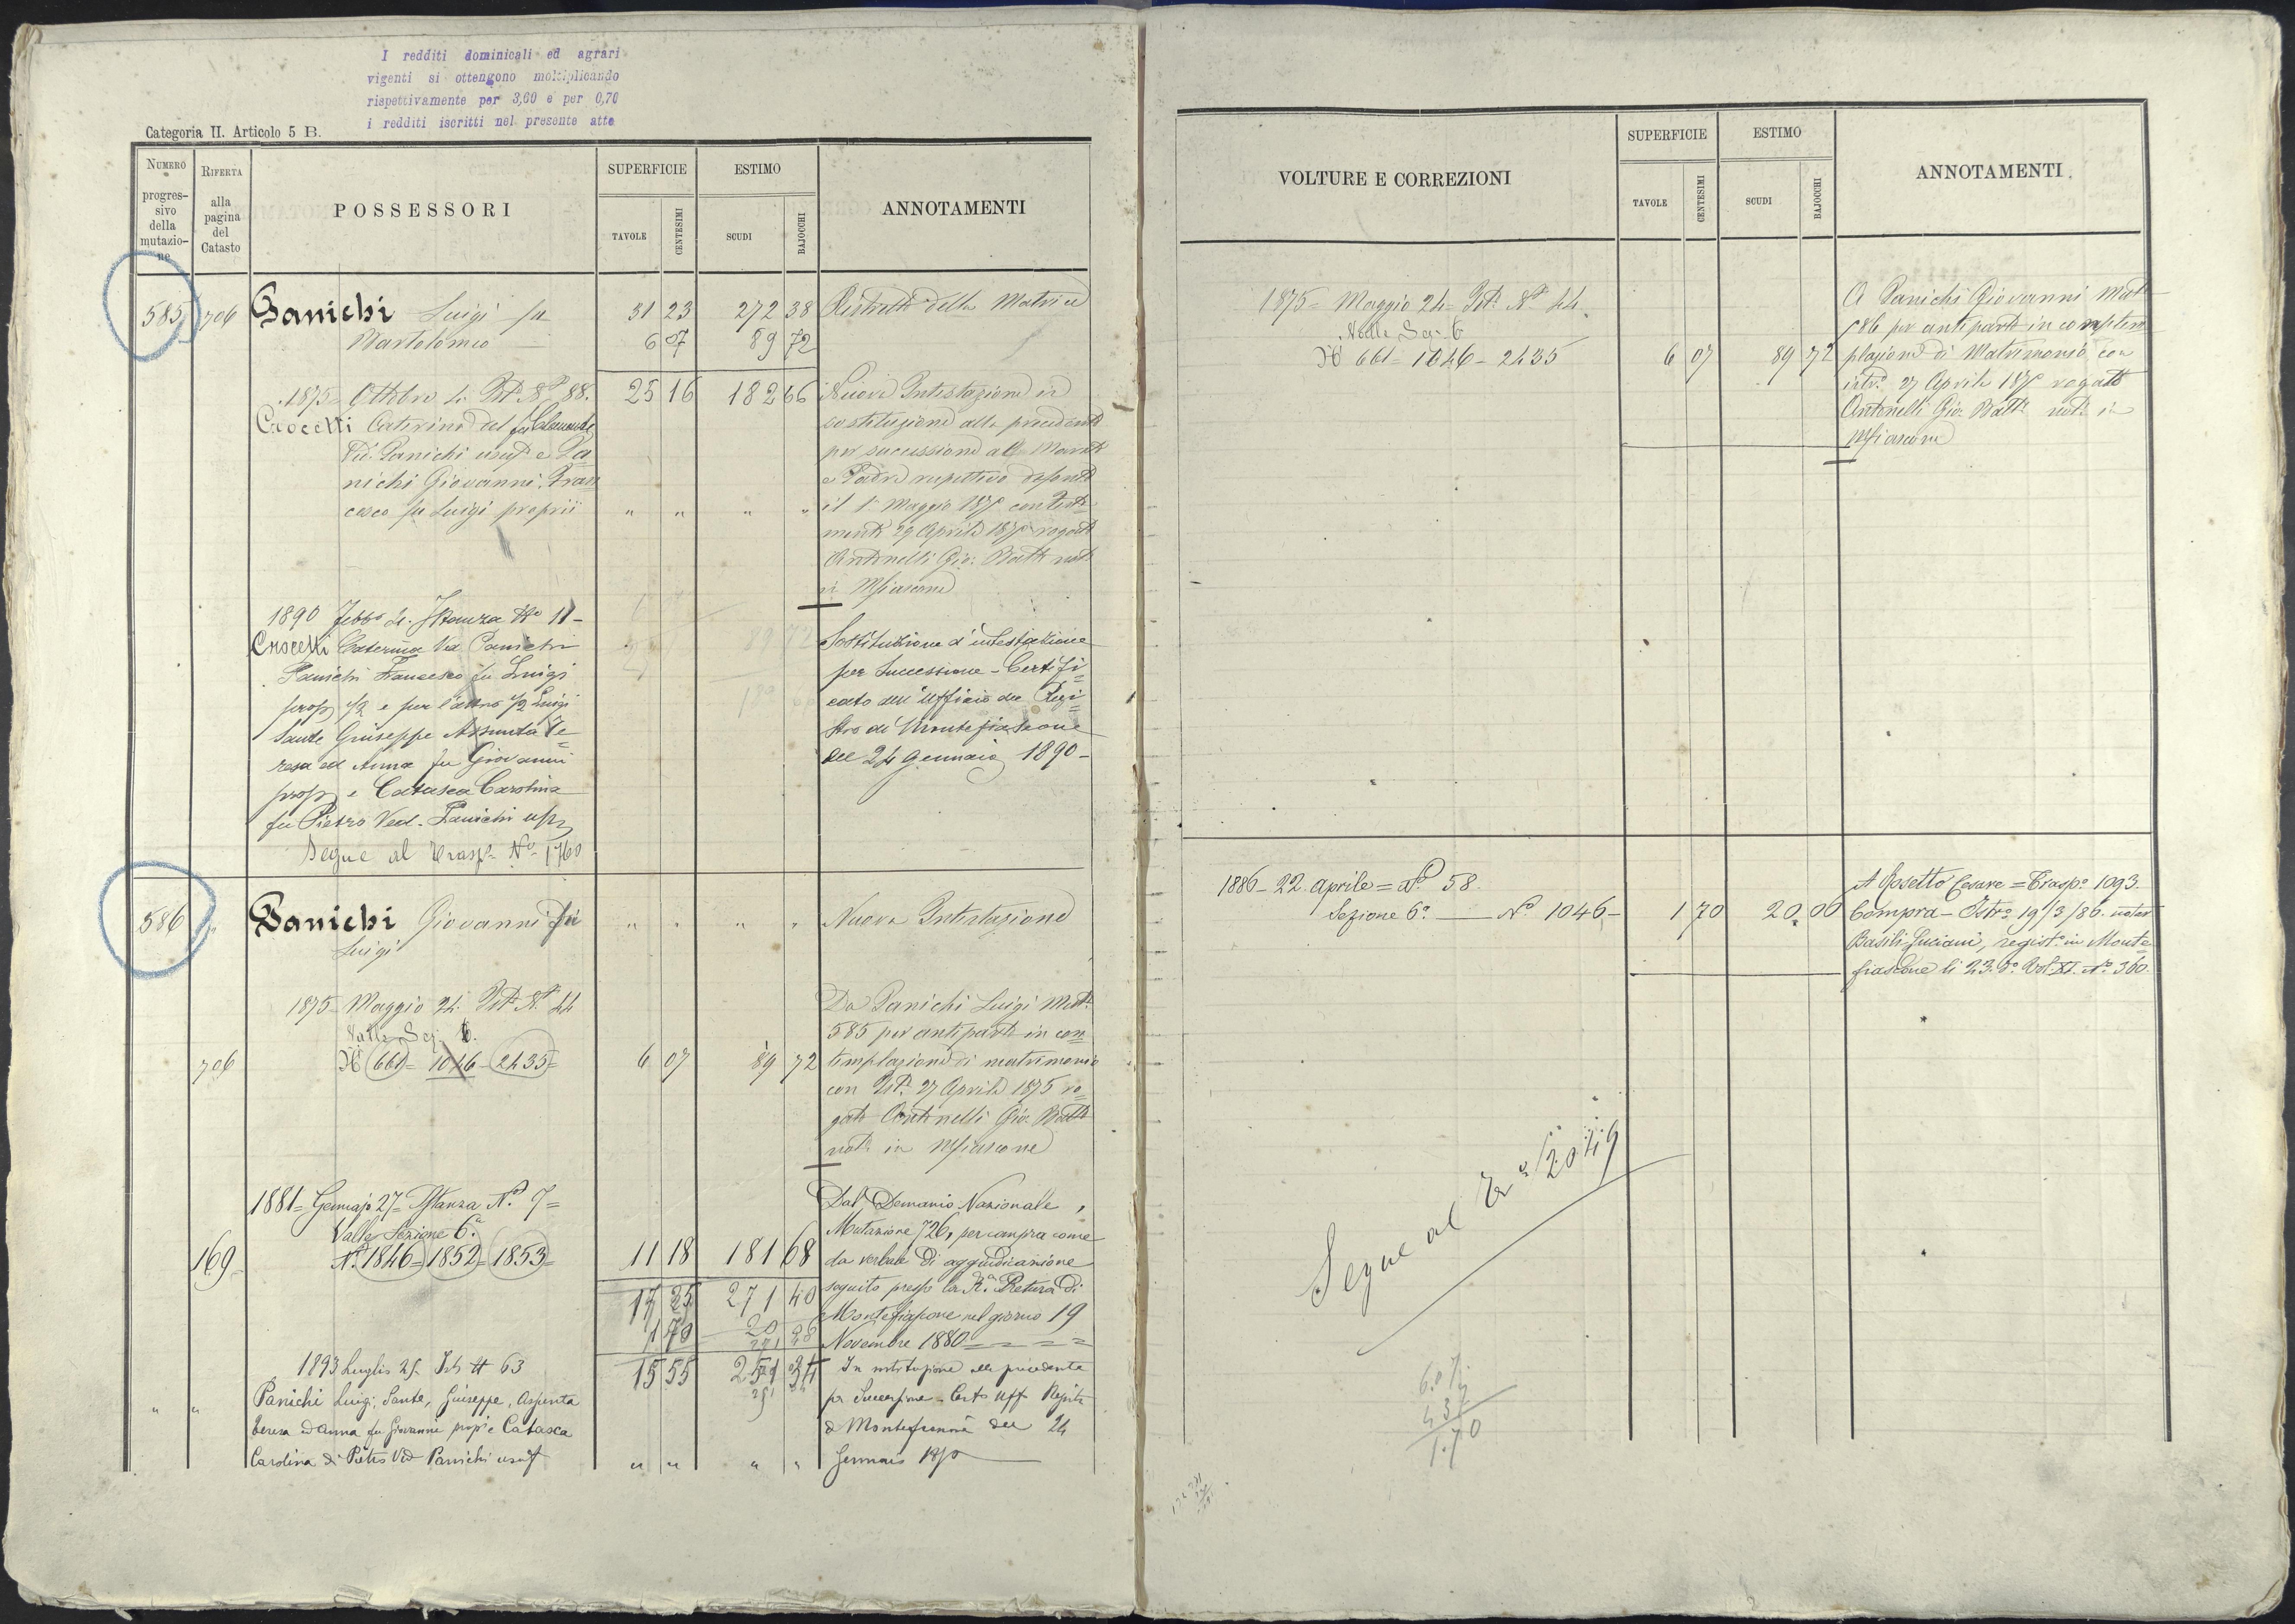 I redditi dominicali ed agrari
vigenti si ottengono moltiplicando
rispettivamente per 3,60 e per 0,70
i redditi iscritti nel presente atto
Categoria II. Articolo 5 B.
NUMERO progressivo della mutazione
RIFERTA alla pagina del Catasto
POSSESSORI
SUPERFICIE
TAVOLE
CENTESIMI
ESTIMO
SCUDI
BAJOCCHI
ANNOTAMENTI
585 706 Panichi Luigi fu 31 23 272 38 Ristretto della Matrice
Bartolomeo 6 07 89 72
1875 Ottobre 4. Ist. N° 88. 25 16 182 66 Nuova Intestazione in
Crocetti Caterina del fu Clemente sostituzione alla precedente
Ved. Panichi usuf. e Pa per successione al Marito
nichi Giovanni, Fran e Padre rispettivo defonto
cesco fu Luigi proprii " " " " il 1 Maggio 1875 con testa
mento 29 Aprile 1875 rogato
Antonelli Gio: Batt. not.
in Mfiascone
1890 Febb° 4. Istanza N° 11 -
Crocetti Caterina Ved Panichi Sostituzione d'intestazione
Panichi Francesco fu Luigi per Successione - Certifi=
prop 1/2 e per l'altro 1/2 Luigi cato dell'Ufficio del Regi=
Sante Giuseppe Assunta Te= stro di Montefiascone
resa ed Anna fu Giovanni del 24 gennaio 1890 -
prop e Catasca Carolina
fu Pietro Ved. Panichi usf
Segue al Trasp° N° 1760
586 " Panichi Giovanni fu " " " " Nuova Intestazione
Luigi
1875 Maggio 24. Ist. N° 44 Da Panichi Luigi Mut.
Valle Sez. 6. 585 per antiparte in con
706 N° 661 = 1046 - 2435 = 6 07 89 72 templazione di matrimonio
con Ist. 27 Aprile 1875 ro=
gato Antonelli Gio. Batt.
not. in Mfiascone
1881 = Gennajo 27 = Istanza N.° 7 = Dal Demanio Nazionale,
Valle Sezione 6.a Mutazione 726, per compra come
169 - N.° 1846 = 1852 = 1853 = 11 18 181 68 da verbale di aggiudicazione
17 25 271 40 seguito presso la R.a Pretura di
1 70 20 Montefiascone nel giorno 19
Novembre 1880 = = = =
1893 Luglio 25. Ist N 63 15 55 251 In sostituzione alla precedente
" " Panichi Luigi, Sante, Giuseppe, Assunta per Successione - Certo Uff Registro
Teresa ed Anna fu Giovanni prop e Catasca di Montefiascone del 24
Carolina di Pietro Ved Panichi usuf " " " " Gennaio 1890
VOLTURE E CORREZIONI
SUPERFICIE
TAVOLE
CENTESIMI
ESTIMO
SCUDI
BAJOCCHI
ANNOTAMENTI
1875 = Maggio 24 = Ist. N° 44. A Panichi Giovanni Mut
Valle Sez. 6 586 per antiparte in contem
N° 661 - 1046 - 2435 6 07 89 72 plazione di Matrimonio con
istr.° 27 Aprile 1875 rogato
Antonelli Gio. Batt. not. in
Mfiascone
1886 - 22. Aprile = N° 58. A Rosetto Cesare = Trasp° 1093.
Sezione 6a. — N° 1046 - 1 70 20 00 Compra - Istr° 19/3/86. notar
Basili Luciani, regist° in Monte=
fiascone li 23. d° Vol XI. N° 360.
Segue al Tr° 2049
6.07
4 37
1.70